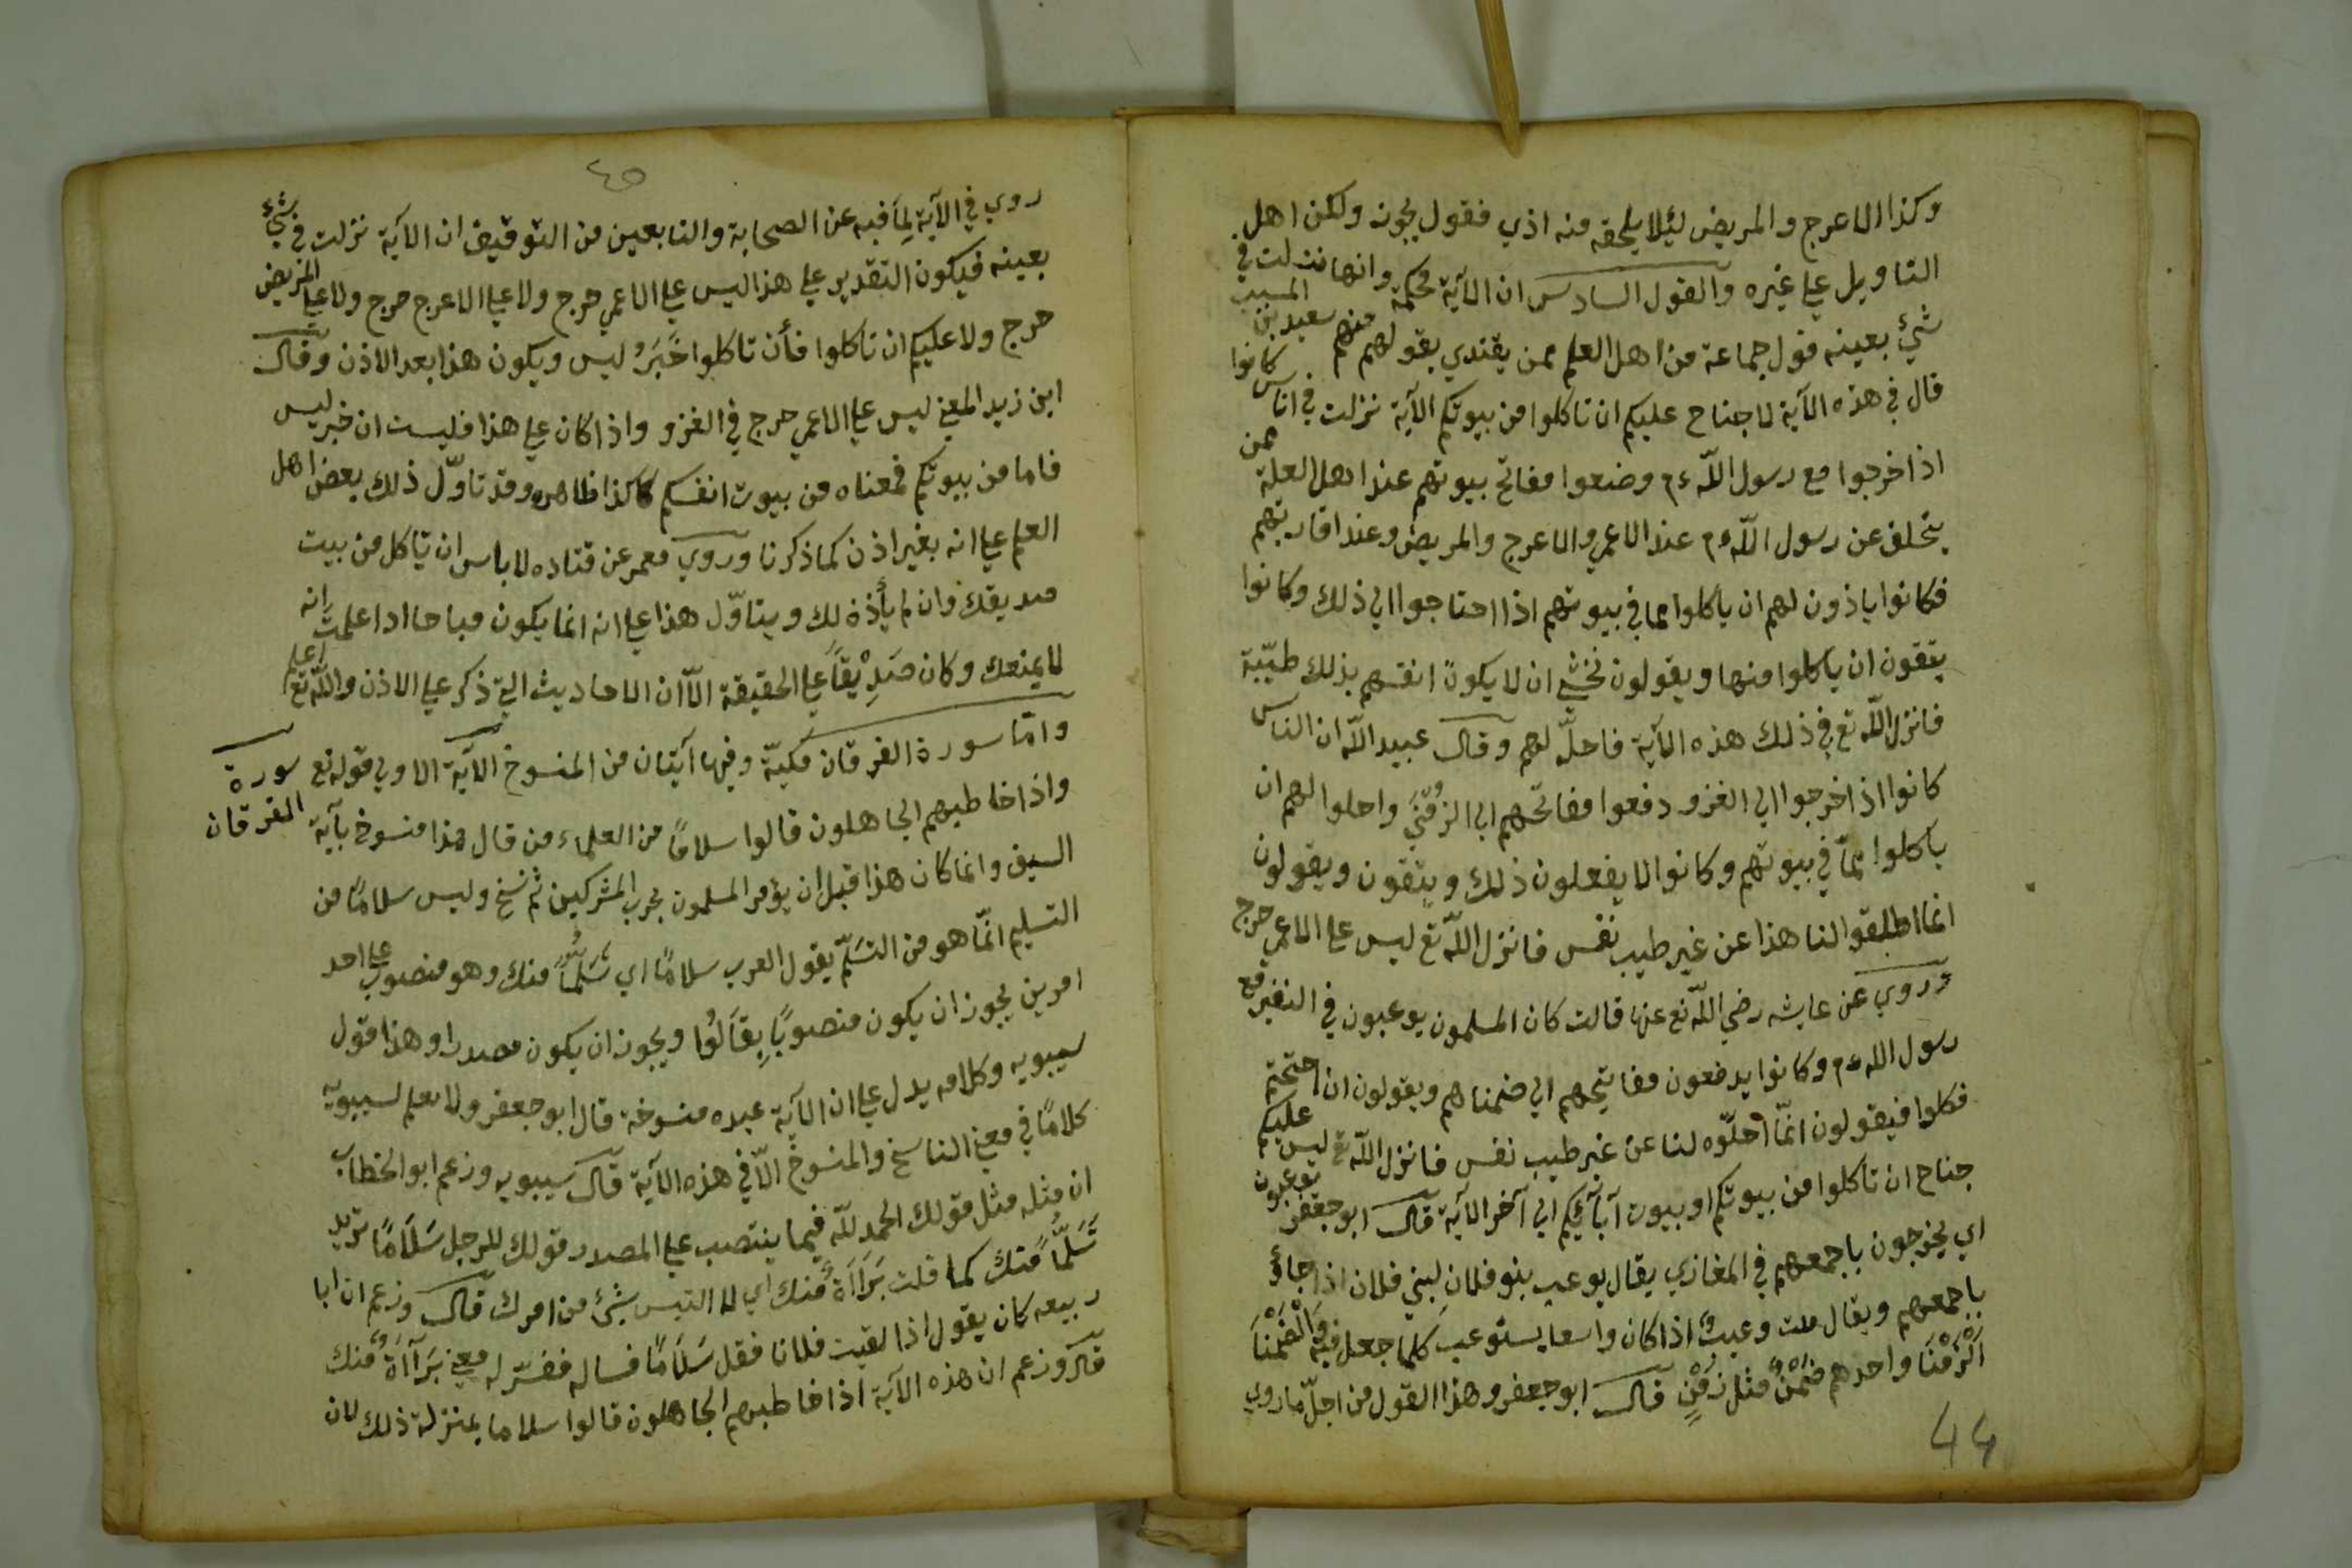 وكذا الاعرج والمريض ليلا يلحقه منه اذي فقول يجوز ولكن اهل
التاويل علي غيره والقول السادس ان الآية محكمة وانها نزلت في
شئ بعينه قول جماعة من اهل العلم ممن يقتدي بقولهم منهم سعيد بن المسيب
قال في هذه الآية لا جناح عليكم ان تاكلوا من بيوتكم الآية نزلت في اناس كانوا
اذا خرجوا مع رسول اللّه ءم وضعوا مفاتح بيوتهم عند اهل العلة ممن
يتخلف عن رسول اللّه ءم عند الاعمي والاعرج والمريض وعند اقاربهم
فكانوا ياذون لهم ان ياكلوا مما في بيوتهم اذا احتاجوا الي ذلك وكانوا
يتقون ان ياكلوا منها ويقولون نخشي ان لا يكون انفسهم بذلك طيّبة
فانزل اللّه تع في ذلك هذه الآية فاحلّ لهم وقال عبيد اللّه ان الناس
كانوا اذا خرجوا الي الغزو دفعوا مفاتحهم الي الزمني واحلوا لهم ان
ياكلوا ممّا في بيوتهم وكانوا لا يفعلون ذلك ويتقون ويقولون
انما اطلقوا لنا هذا عن غير طيب نفس فانزل اللّه تع ليس علي الاعمي حرج
وروي عن عايشه رضي اللّه تع عنها قالت كان المسلمون يوعبون في النفير مع
رسول الله ءم وكانوا يدفعون مفاتيحهم الي ضمناهم ويقولون ان احتجتم
فكلوا فيقولون انمّا احلّوه لنا عن غير طيب نفس فانزل اللّه تع ليس عليكم
جناح ان تاكلوا من بيوتكم او بيوت آبآئكم الي آخر الآية قال ابو جعفر يوعبون
اي يخرجون باجمعهم في المغازي يقال يوعب بنو فلان لبني فلان اذا جاؤ
باجمعهم ويقال بيت وعيب اذا كان واسعا يستوعب كلما جعل فيه والضَمْنَا
الزَمْنَا واحدهم ضَمِنٌ مثل زَمِنٍ قال ابو جعفر وهذا القول من اجلّ ما روي
44
45
روي في الآية لِمَا فيه عن الصحابة والتابعين من التوقيف ان الآية نزلت في شئ
بعينه فيكون التقدير علي هذا ليس علي الاعمي حرج ولا علي الاعرج حرج ولا علي المريض
حرج ولا عليكم ان تاكلوا فأن تاكلوا خَبَرُ ليس ويكون هذا بعد الاذن وقال
ابن زيد المعني ليس علي الاعمي حرج في الغزو واذا كان علي هذا فليست ان خبر ليس
فاما من بيوتكم فمعناه من بيوت انفسكم كذا ظاهره وقد تاوّل ذلك بعض اهل
العلم علي انه بغير اذن كما ذكرنا وروي معمر عن قتاده لا باس ان تاكل من بيت
صديقك وان لم يأذن لك ويتاوّل هذا علي انه انما يكون مباحا اذا علمت انه
لا يمنعك وكان صَدِيْقاً علي الحقيقة الاّ ان الاحاديث التي ذكر علي الاذن واللّه تع اعلم
وامّا سورة الفرقان مكيّة وفيها آيتان من المنسوخ الآية الاولي قوله تع سورة الفرقان
واذا خاطبهم الجاهلون قالوا سلامًا من العلماء من قال هذا منسوخ بآية
السيف وانما كان هذا قبل ان يؤمر المسلمون بحرب المشركين ثم نسخ وليس سلامًا من
التسليم انمّا هو من التسلّم يقول العرب سلامًا اي تسَلّمًا منك وهو منصوب علي احد
امرين يجوز ان يكون منصوبًا بِقَالُوا ويجوز ان يكون مصدرا وهذا قول
سيبويه وكلامه يدل علي ان الآية عنده منسوخة قال ابو جعفر ولا نعلم لسيبويه
كلامًا في معني الناسخ والمنسوخ الاّ في هذه الآية قال سيبويه وزعم ابو الخطاب
ان مثله مثل قولك الحمد للّه فيما ينتصب علي المصدر قولك للرجل سَلَامًا تريد
تَسَلُّمًا منك كما قلت بَرَاءَةً منك اي لا التبس بشئ من امرك قال وزعم ان ابا
ربيعه كان يقول اذا لقيت فلانا فقل سَلَامًا فساله ففسّر له معني بَرَآءَة منك
قال وزعم ان هذه الآية اذا خاطبهم الجاهلون قالوا سلاما بمنزلة ذلك لان